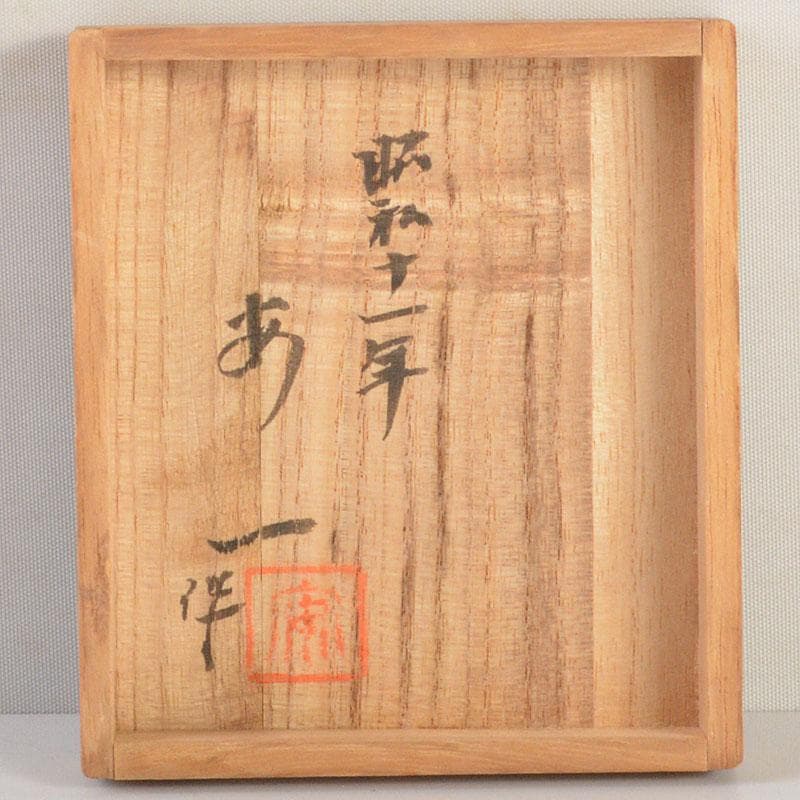 昭和十一年
安一作